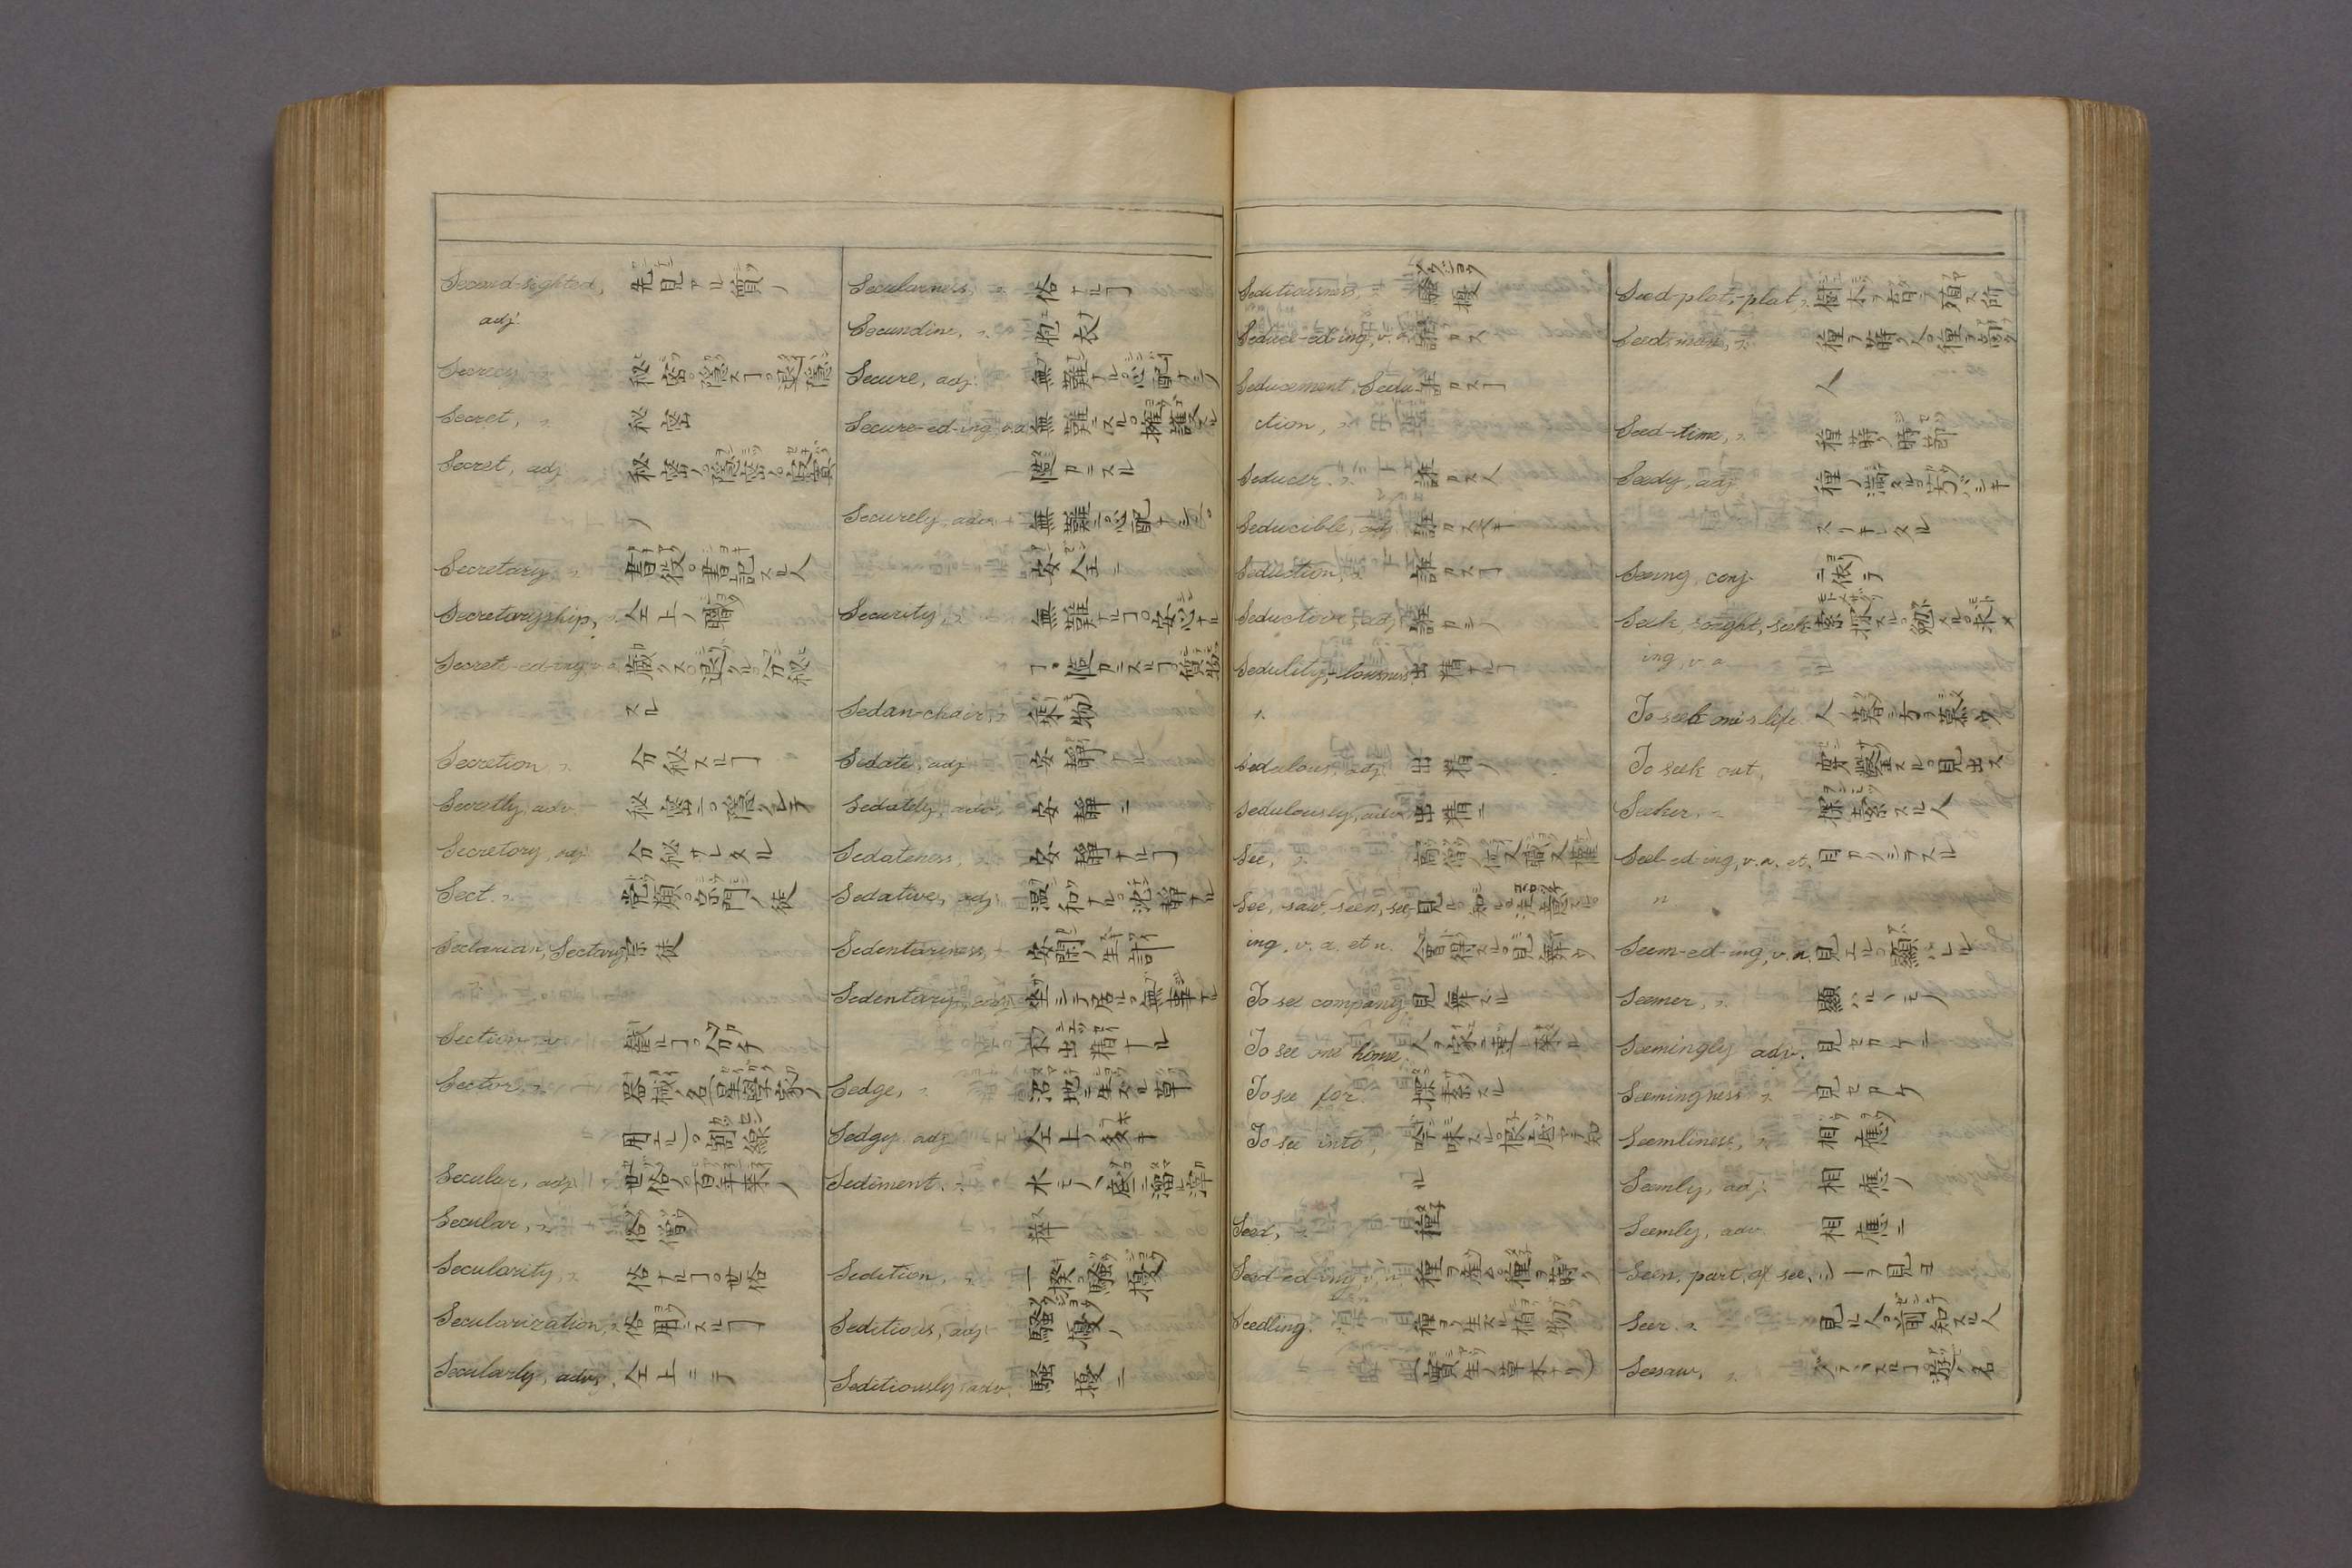 Second-sighted, 先見アル 賢ノ
adj.
Secrecy, n. 秘密。隠ス
Secret, n. 秘密
Secret, adj. 秘密ノ。隠密ノ
Secretary, n. 書役。書記スル人
Secretaryship, n. 仝上ノ職
Secrete-ed-ing, v.a. 蔵クス。退クル。分秘
スル
Secretion, n. 分秘スルヿ
Secretly, adv. 秘密ニ。隠クレテ
Secretory, adj. 分秘サレタル
Sect, n. 党類。宗門ノ徒
Sectarian, Sectary 宗徒
n.
Section, n. 截ルヿ。分チ
Sector, n. 器械ノ名(星学家ノ
用ユル)。割線
Secular, adj. 世俗ノ。百年来ノ
Secular, n. 俗僧
Secularity, n. 俗ナルヿ。世俗
Secularization, n. 俗用ニスルヿ
Secularly, adv. 仝上ニテ
Secularness, n. 俗ナルヿ
Secundine, n. 胞衣
Secure, adj. 無難ナル。心配ナキ
Secure-ed-ing, v.a. 無難ニスル。擁護スル
慥カニスル
Securely, adv. 無難ニ。心配ナシニ。
安全ニ
Security, n. 無難ナルヿ。安心ナル
ヿ。慥カニスルヿ。質物
Sedan-chair, n. 乗物
Sedate, adj. 安静ナル
Sedately, adv. 安静ニ
Sedateness, n. 安静ナルヿ
Sedative, adj. 温和ナル。沈静ナル
Sedentariness, n. 安閑ノ生計
Sedentary, adj. 坐シテ居ル。無事ナル
不出精ナル
Sedge, n. 沼地ニ生スル草
Sedgy, adj. 仝上ノ多キ
Sediment, n. 水モノノ底ニ溜ル滓
Sedition, n. 一揆。騒擾
Seditious, adj. 騒擾ノ
Seditiously, adv. 騒擾ニ
Seditiousness, n. 騒擾
Seduce-ed-ing, v.a. 誑カス
Seducement, Sedu- 誑カスヿ
ction, n.
Seducer, n. 誑カス人
Seducible, adj. 誑カスベキ
Seduction, n. 誑カスヿ
Seductive, adj. 誑カシノ
Sedulity, -lousness, 出精ナルヿ
n.
Sedulous, adj. 出精ノ
Sedulously, adv. 出精ニ
See, n. 高僧ノ位又職又権
See, saw, seen, see- 見ル。知ル。注意スル。
ing, v. a. et n. 會得スル。見舞ウ
To see company, 見舞スル
To see one home, 人ヲ家ニ連レ来ル
To see for, 探索スル
To see into, 吟味スル。根底マデ知
ル
Seed, n. 種子
Seed-ed-ing, v. n. 種ヲ産ム。種ヲ蒔ク
Seedling, 種ヨリ生スル植物
(實生ノ草木ナリ)
Seed-plot, -plat, n. 樹木ヲ育テ殖ス所
Seedsman, n. 種ヲ蒔ク人。種ヲ商ク
人
Seed-time, n. 種蒔ノ時節
Seedy, adj. 種ノ満タル。
スリキレタル
Seeing, conj. ニ依テ
Seek, sought, seek- 索探スル。勉メル。求メ
ing, v. a. ル
To seek one's life. 人ノ
To seek out, 穿鑿スル。見出ス
Seeker, n. 探索スル人
Seel-ed-ing, v. a. et. 目カクシヲスル
n
Seem-ed-ing, v. n. 見エル。顯ハレル
Seemer, n. 顯ハルヽモノ
Seemingly adv. 見セカケニ
Seemingness n. 見セカケ
Seemliness, n. 相應
Seemly, adj. 相應ノ
Seemly, adv. 相應ニ
Seen, part. of see, シーヲ見ヨ
Seer n. 見ル人。前知スル人
Seesaw, n. ブラヽスルヿ。遊ビノ名